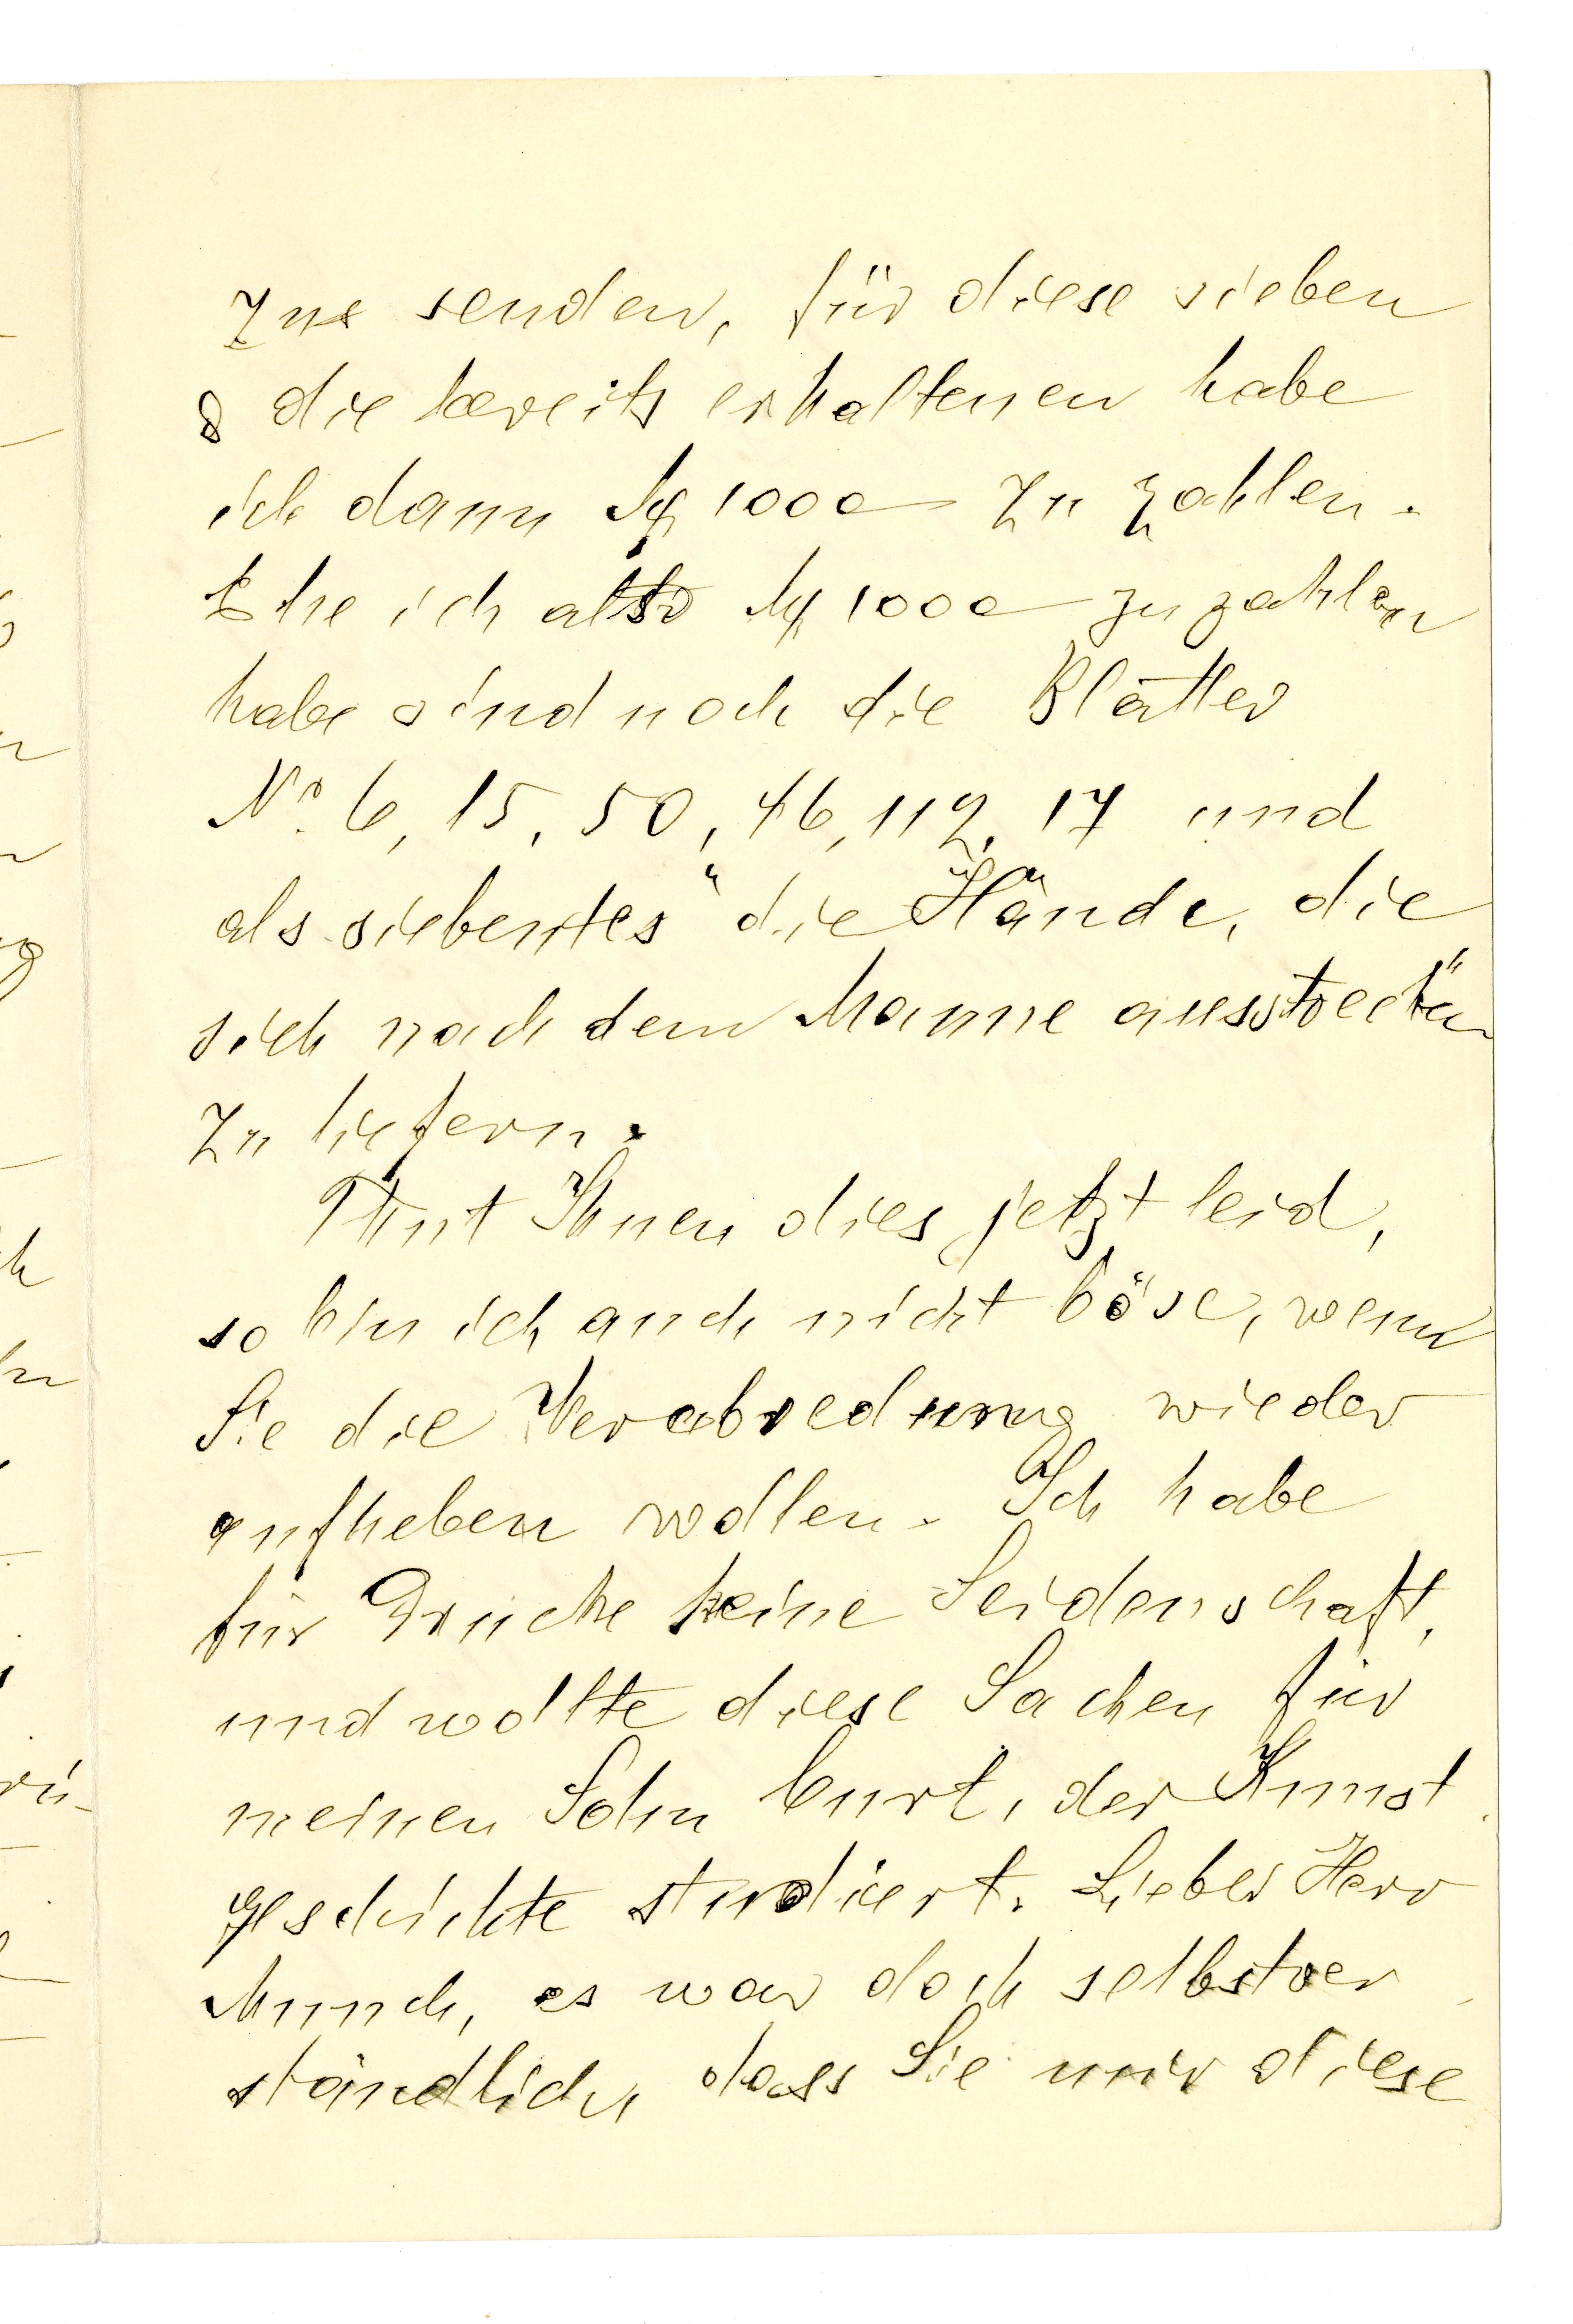 zus senden, für diese sieben
& die bereits erhaltenen habe
ich dann M 1000 zu zahlen.
Ehe ich also M 1000 zu zahlen
habe sind noch die Blätter
No. 6, 15, 50, 46, 112, 17 und
als siebentes "die Hände, die
sich nach dem Manne ausstrecken"
zu liefern.
Thut Ihnen dies jetzt leid,
so bin ich auch nicht böse, wenn
Sie die Verabredung wieder
aufheben wollen. Ich habe
für Drucke keine Leidenschaft,
und wollte diese Sachen für
meinen Sohn Curt, der Kunst
geschichte studiert. Lieber Herr
Munch, es war doch selbstver
ständlich, dass Sie mir diese